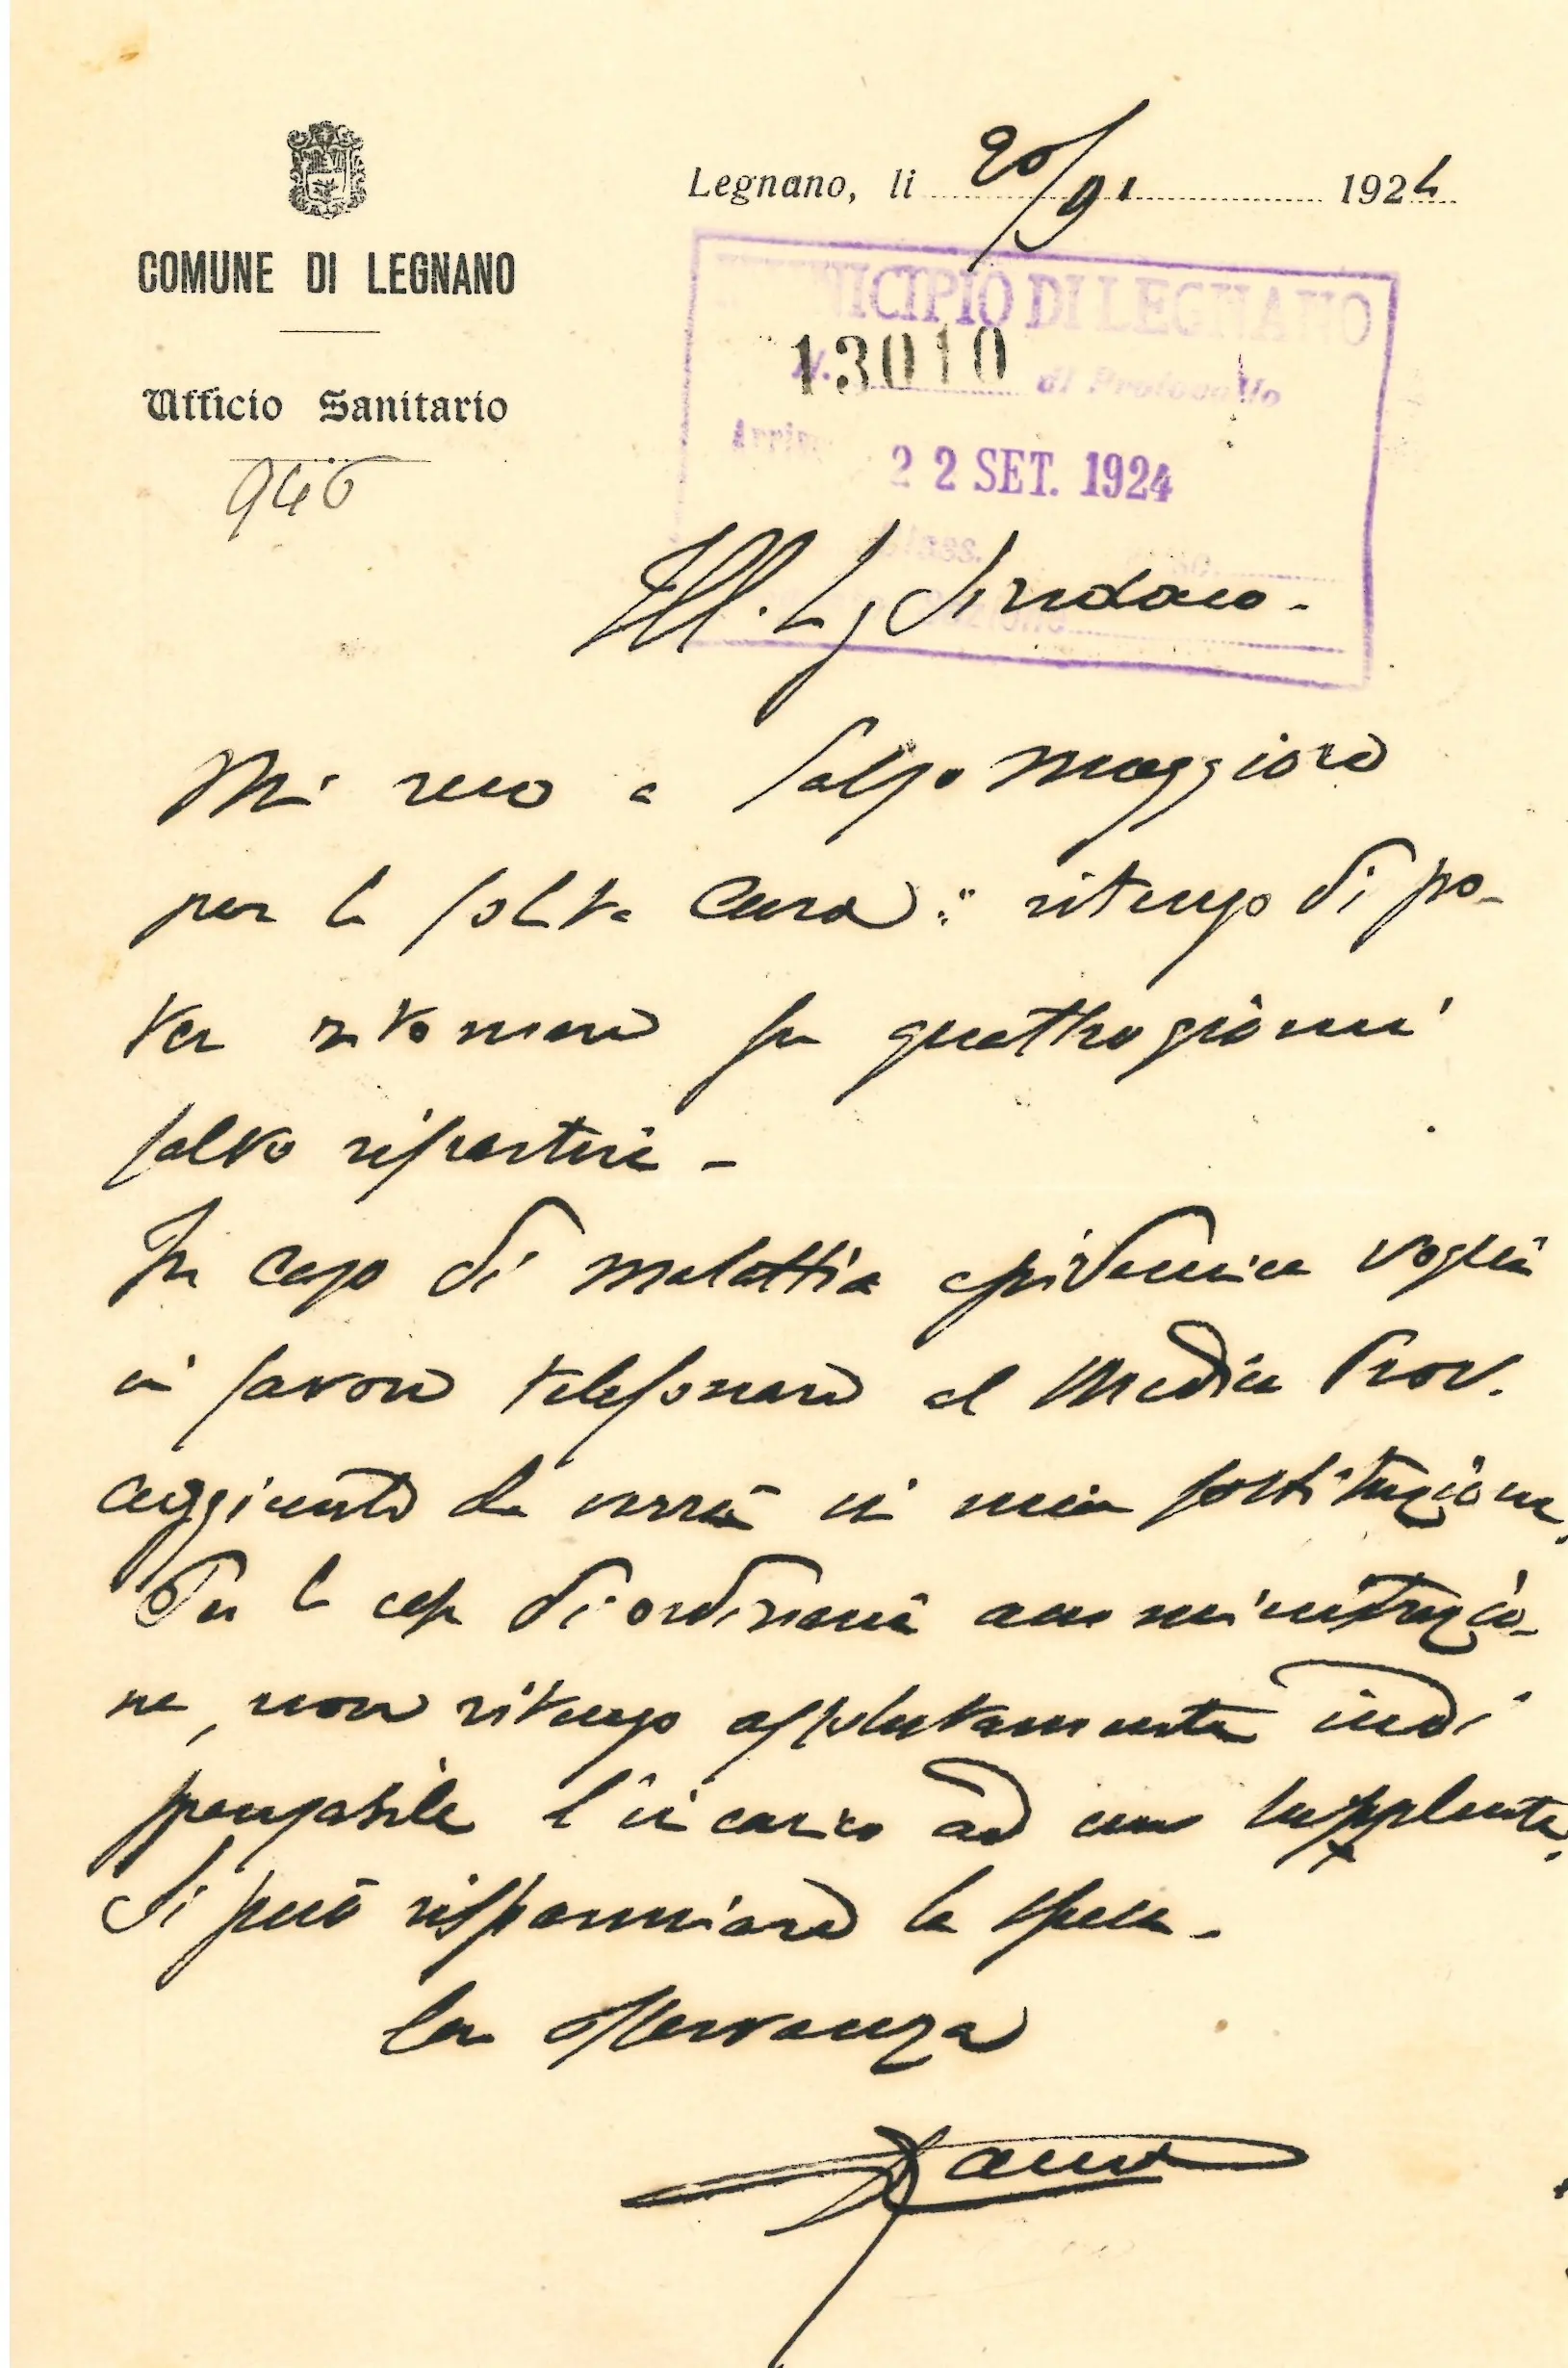 Legnano, li 20/9. 1924
COMUNE DI LEGNANO
Ufficio Sanitario
946
MUNICIPIO DI LEGNANO
N. 13010 di Protocollo
Arrivo
22 SET. 1924
Class.
Ill. Sig Sindaco.
Mi reco a Salsomaggiore
per la solita cura: ritengo di po-
ter ritornare fra quattro giorni
salvo ripartire -
In caso di malattia epidemica voglia
in favore telefonare al Medico Prov.
aggiunto che verrà in mia sostituzione.
Per le cose di ordinaria amministrazio-
ne, non ritengo assolutamente indi
spensabile l'incarico ad un supplente.
Si può risparmiare la spesa.
Con osservanza